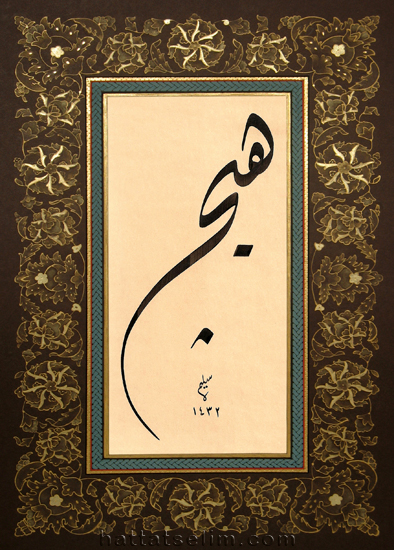 هيچ
سليم
١٤٣٢
hattatselim.com